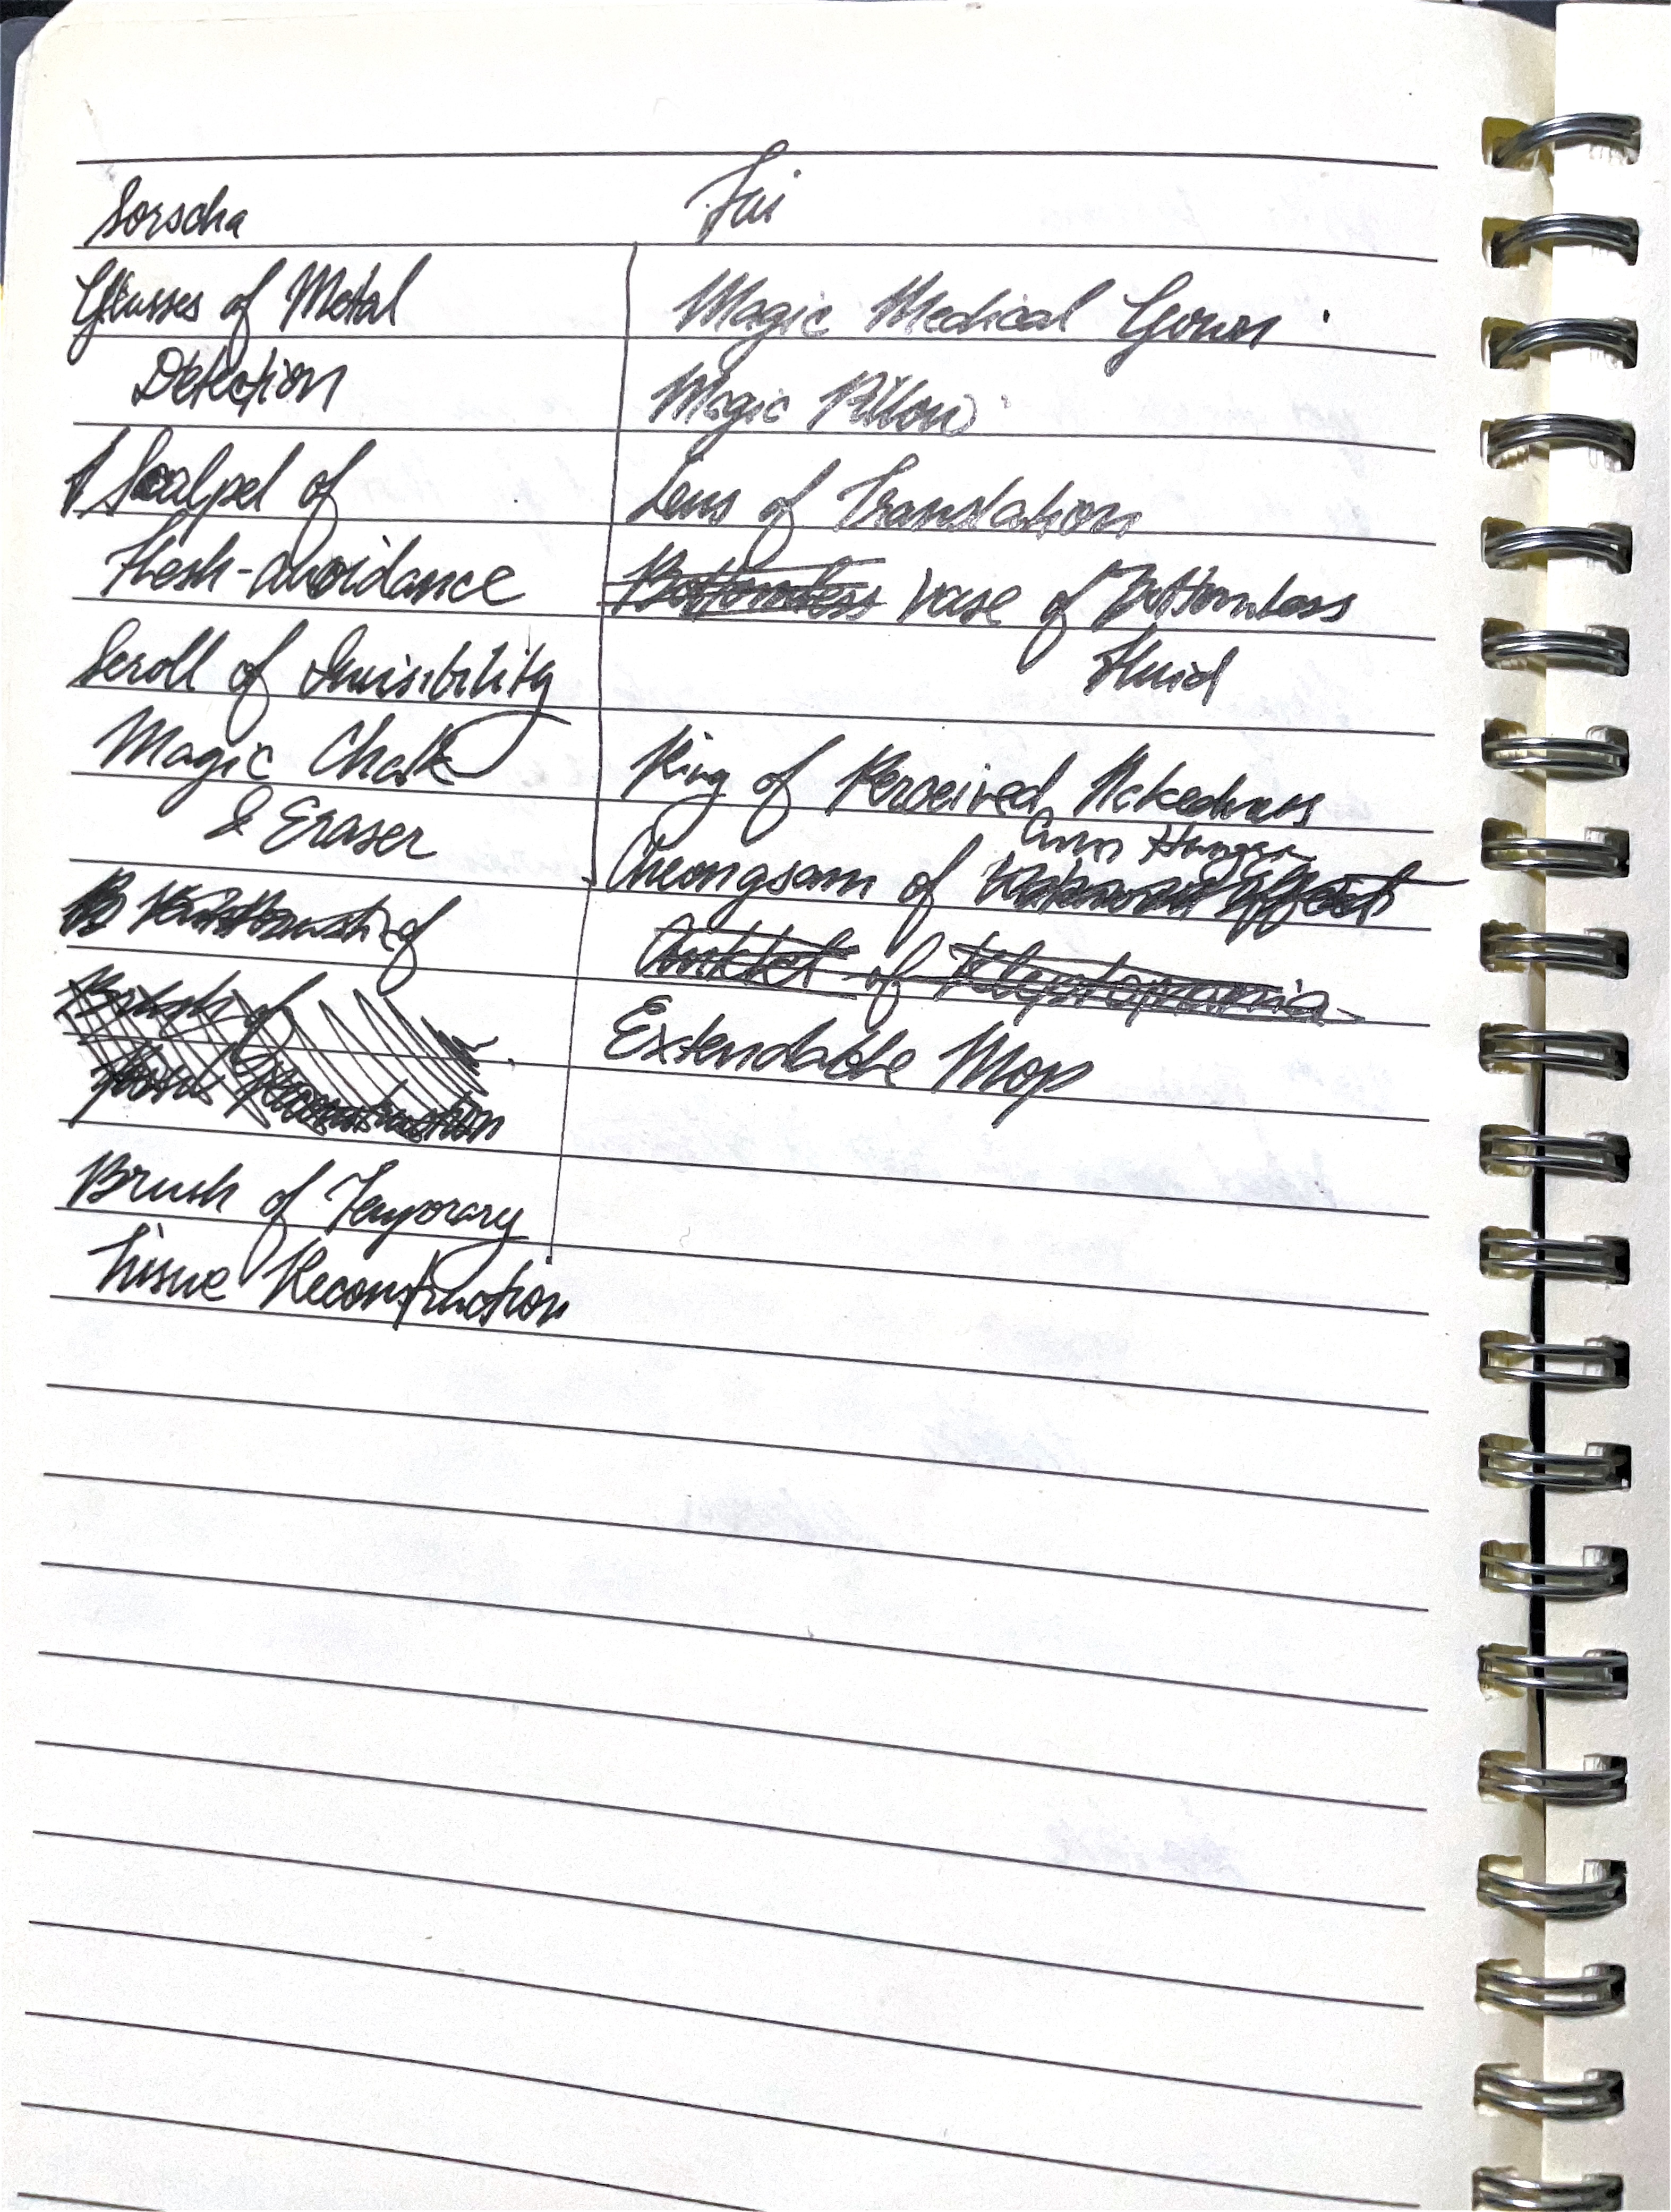 Sorscha
Glasses of Metal
Detection
Scalpel of
Flesh-avoidance
Scroll of Invisibility
Magic Chalk
& Eraser
of
Brush of
Reconstruction
Brush of Temporary
Tissue Reconstruction
Fui
Magic Medical Gown
Magic Pillow
Lens of Translation
Bottomless Vase of Bottomless
Fluid
Ring of Perceived Nakedness
Arm Hanger
Cheongsam of
Anklet of Kleptomania
Extendable Mop